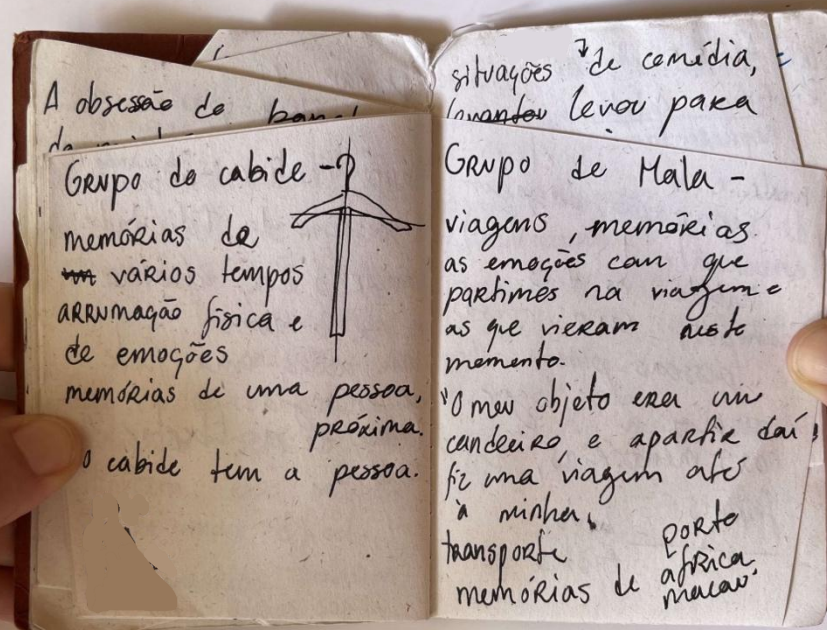 A obsessão do
Grupo do cabide -
memórias de
vários tempos
arrumação física e
de emoções
memórias de uma pessoa,
próxima.
o cabide tem a pessoa.
situações de comédia,
levou para
Grupo de Mala -
viagens, memórias
as emoções com que
partimos na viagem e
as que vieram neste
momento.
"O meu objeto era um
candeeiro, e apartir daí
fiz uma viagem até
à minha
transporte
memórias de
porto
áfrica
macau.